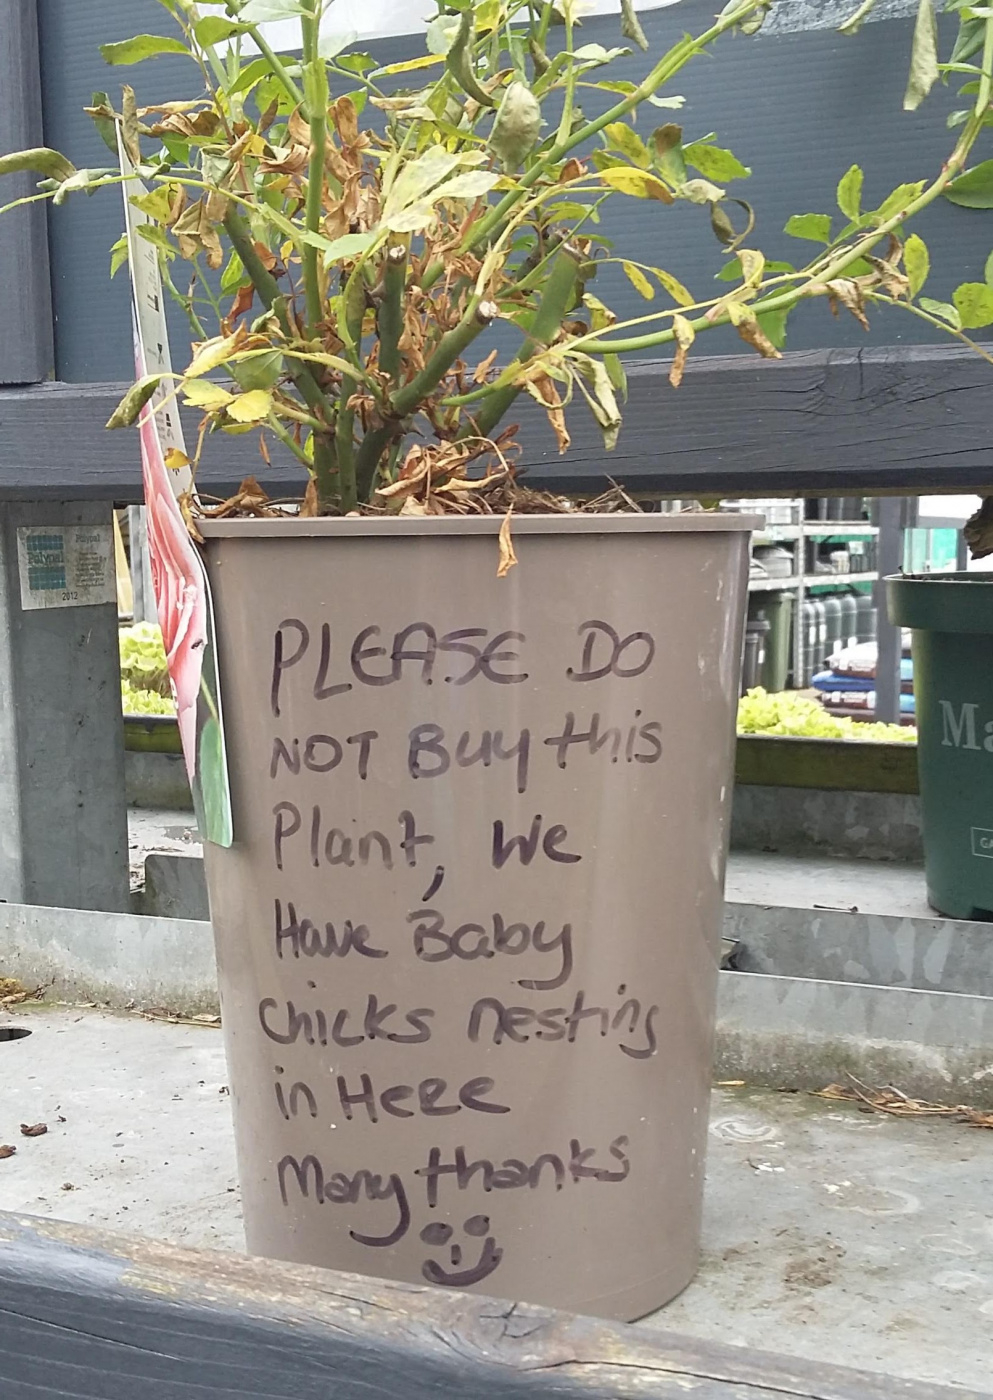 PLEASE DO
NOT Buy this
Plant, We
Have Baby
chicks nesting
in Here
Many thanks
Polynal
Polynal
2012
Ma